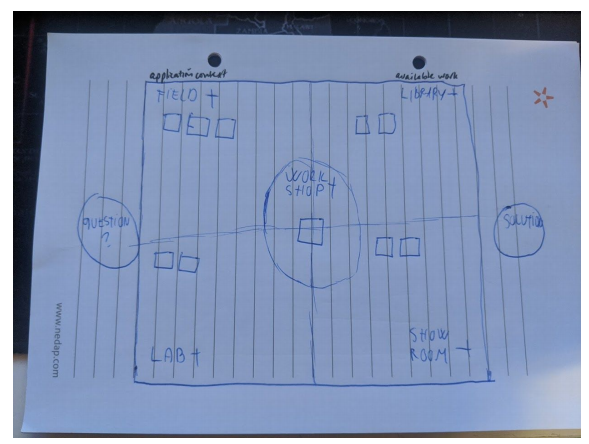 application context
available work
FIELD +
LIBRARY +
WORK
SHOP +
QUESTION
?
SOLUTION
LAB +
SHOW
ROOM +
www.nedap.com